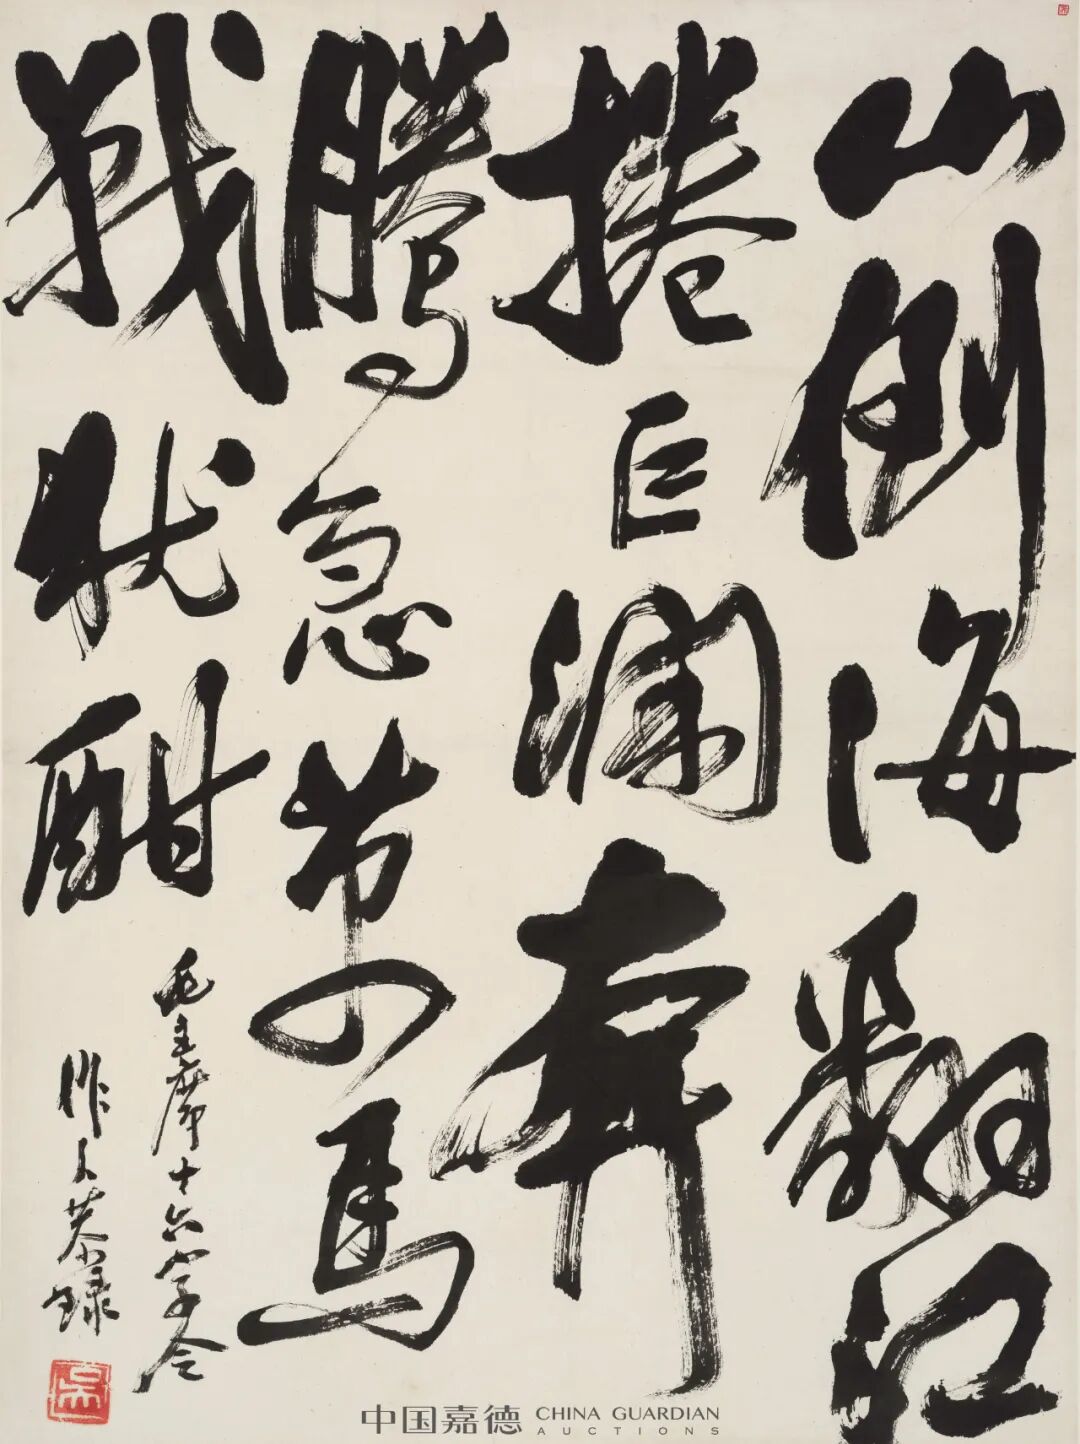 山倒海翻江
捲巨瀾奔
騰急萬馬
戰犹酣
毛主席十六字令
作人恭録
中国嘉德 CHINA GUARDIAN
AUCTIONS